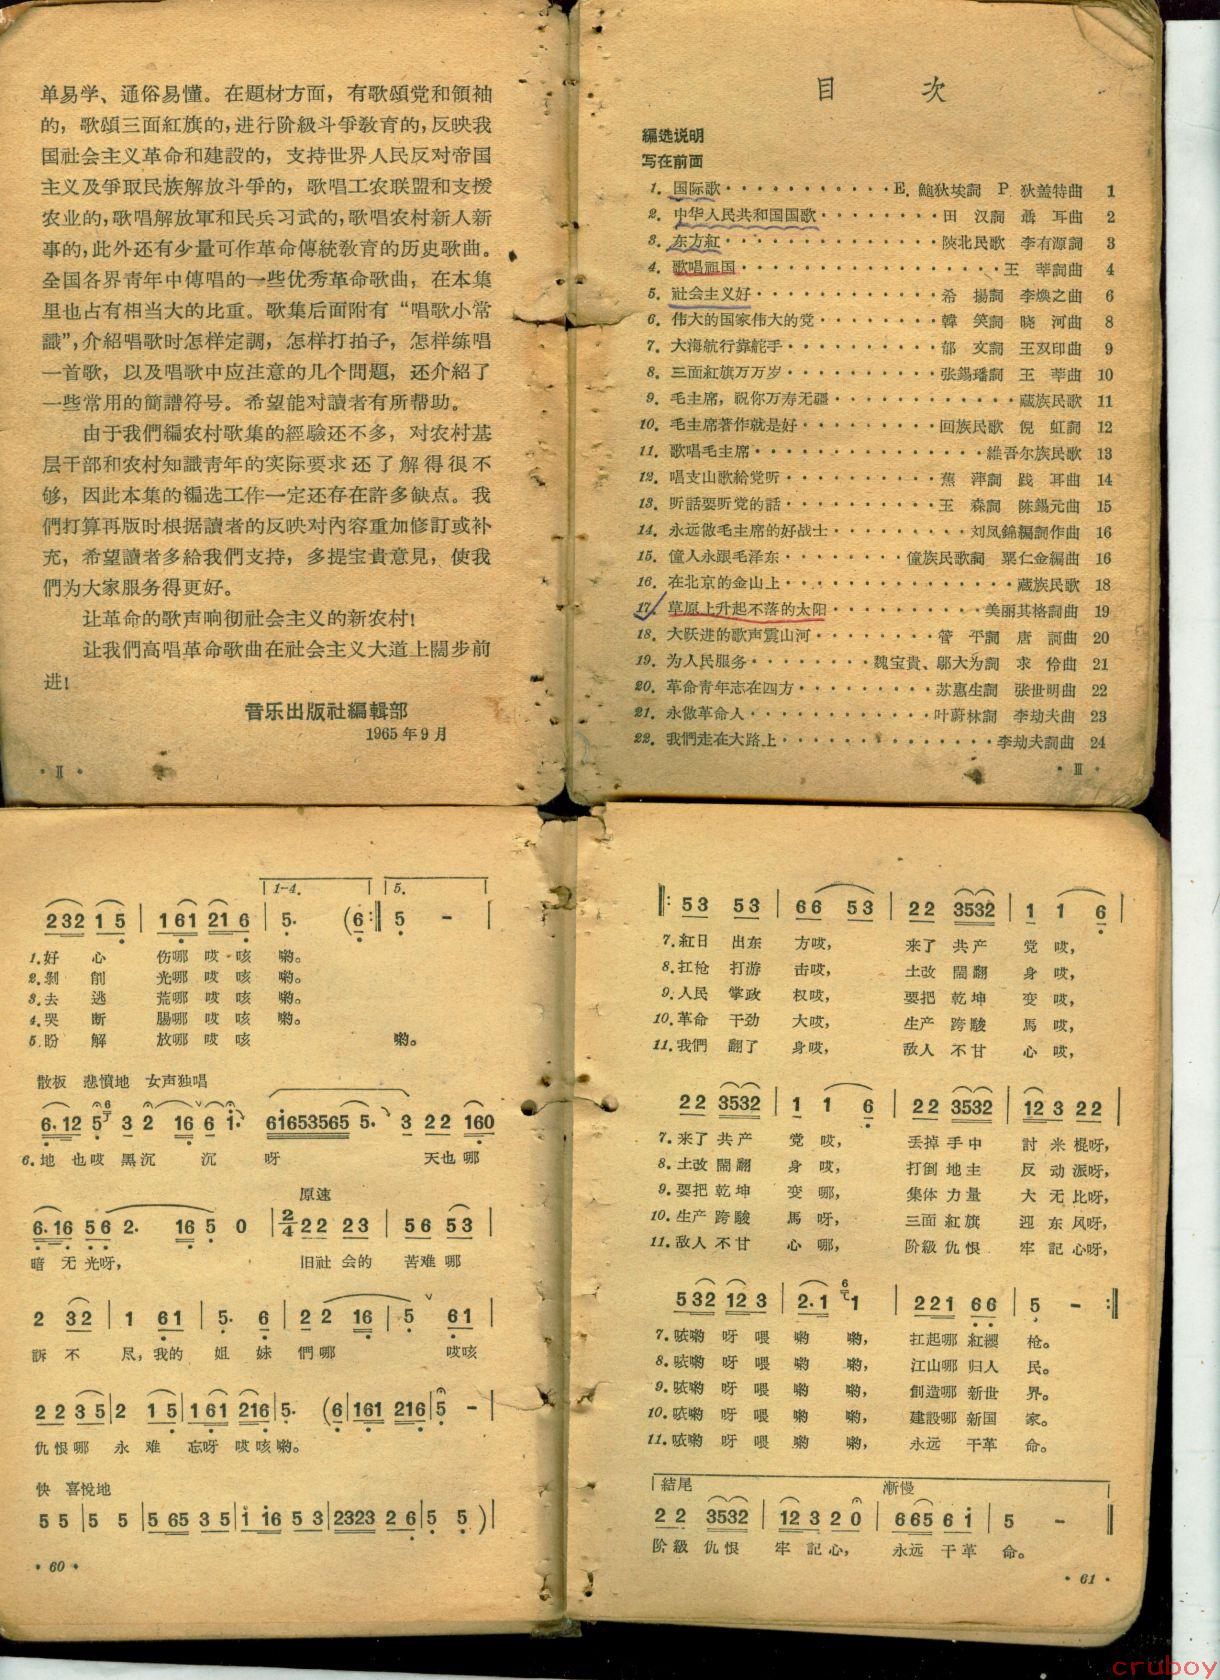 单易学、通俗易懂。在题材方面，有歌頌党和領袖
的，歌頌三面紅旗的，进行阶級斗爭敎育的，反映我
国社会主义革命和建設的，支持世界人民反对帝国
主义及爭取民族解放斗爭的，歌唱工农联盟和支援
农业的，歌唱解放軍和民兵习武的，歌唱农村新人新
事的，此外还有少量可作革命傳統敎育的历史歌曲。
全国各界青年中傳唱的一些优秀革命歌曲，在本集
里也占有相当大的比重。歌集后面附有“唱歌小常
識”，介紹唱歌时怎样定調，怎样打拍子，怎样练唱
一首歌，以及唱歌中应注意的几个問題，还介紹了
一些常用的簡譜符号。希望能对讀者有所帮助。
由于我們編农村歌集的經驗还不多，对农村基
层干部和农村知識青年的实际要求还了解得很不
够，因此本集的編选工作一定还存在許多缺点。我
們打算再版时根据讀者的反映对內容重加修訂或补
充，希望讀者多給我們支持，多提宝貴意見，使我
們为大家服务得更好。
让革命的歌声响彻社会主义的新农村！
让我們高唱革命歌曲在社会主义大道上闊步前
进！
音乐出版社編輯部
1965年9月
· II ·
目 次
編选说明
写在前面
1. 国际歌············E. 鮑狄埃詞 P. 狄盖特曲 1
2. 中华人民共和国国歌········田 汉詞 聶 耳曲 2
3. 东方紅··············陝北民歌 李有源詞 3
4. 歌唱祖国·················王 莘詞曲 4
5. 社会主义好············希 揚詞 李煥之曲 6
6. 伟大的国家伟大的党········韓 笑詞 晓 河曲 8
7. 大海航行靠舵手··········郁 文詞 王双印曲 9
8. 三面紅旗万万岁··········张錫璠詞 王 莘曲 10
9. 毛主席，祝你万寿无疆············藏族民歌 11
10. 毛主席著作就是好·········回族民歌 倪 虹詞 12
11. 歌唱毛主席···············維吾尔族民歌 13
12. 唱支山歌給党听··········蕉 萍詞 践 耳曲 14
13. 听話要听党的話··········王 森詞 陈錫元曲 15
14. 永远做毛主席的好战士·········刘凤錦編詞作曲 16
15. 僮人永跟毛泽东········僮族民歌詞 粟仁金編曲 16
16. 在北京的金山上···············藏族民歌 18
17. 草原上升起不落的太阳··········美丽其格詞曲 19
18. 大跃进的歌声震山河········管 平詞 唐 訶曲 20
19. 为人民服务········魏宝貴、鄔大为詞 求 伶曲 21
20. 革命青年志在四方·········苏惠生詞 张世明曲 22
21. 永做革命人············叶蔚林詞 李劫夫曲 23
22. 我們走在大路上··············李劫夫詞曲 24
· III ·
1-4. 5.
232 15 | 161 216 | 5· (6 :‖ 5 - |
1.好 心 伤哪 哎 咳 喲。
2.剝 削 光哪 哎 咳 喲。
3.去 逃 荒哪 哎 咳 喲。
4.哭 断 腸哪 哎 咳 喲。
5.盼 解 放哪 哎 咳 喲。
散板 悲憤地 女声独唱
6·12 5 6 3 2 16 6 1· 61653565 5· 3 22 160
6.地 也哎 黑沉 沉 呀 天也 哪
原速
6·16 56 2· 16 5 0 | 2/4 22 23 | 56 53 |
暗 无 光呀， 旧社 会的 苦难 哪
2 32 | 1 61 | 5· 6 | 22 16 | 5 61 |
訴 不 尽，我的 姐 妹 們哪 哎咳
22 35 | 2 15 | 161 216 | 5· (6 | 161 216 | 5 - |
仇恨哪 永 难 忘呀 哎咳喲。
快 喜悅地
55 | 5 5 | 565 35 | 1 16 53 | 2323 26 | 5 5 ) |
· 60 ·
‖: 53 53 | 66 53 | 22 3532 | 1 1 6 |
7.紅日 出东 方哎， 来了 共产 党 哎，
8.扛枪 打游 击哎， 土改 鬧翻 身 哎，
9.人民 掌政 权哎， 要把 乾坤 变 哎，
10.革命 干劲 大哎， 生产 跨駿 馬 哎，
11.我們 翻了 身哎， 敌人 不甘 心 哎，
22 3532 | 1 1 6 | 22 3532 | 12 3 22 |
7.来了 共产 党 哎， 丢掉 手中 討 米 棍呀，
8.土改 鬧翻 身 哎， 打倒 地主 反 动 派呀，
9.要把 乾坤 变 哪， 集体 力量 大 无 比呀，
10.生产 跨駿 馬 呀， 三面 紅旗 迎 东 风呀，
11.敌人 不甘 心 哪， 阶級 仇恨 牢 記 心呀，
532 12 3 | 2·1 6 1 | 221 66 | 5 - :‖
7.咳喲 呀 喂 喲 喲， 扛起哪 紅纓 枪。
8.咳喲 呀 喂 喲 喲， 江山哪 归人 民。
9.咳喲 呀 喂 喲 喲， 創造哪 新世 界。
10.咳喲 呀 喂 喲 喲， 建設哪 新国 家。
11.咳喲 呀 喂 喲 喲， 永远 干革 命。
結尾 漸慢
22 3532 | 12 3 2 0 | 665 61 | 5 - ‖
阶級 仇恨 牢 記心， 永远 干革 命。
· 61 ·
cruboy